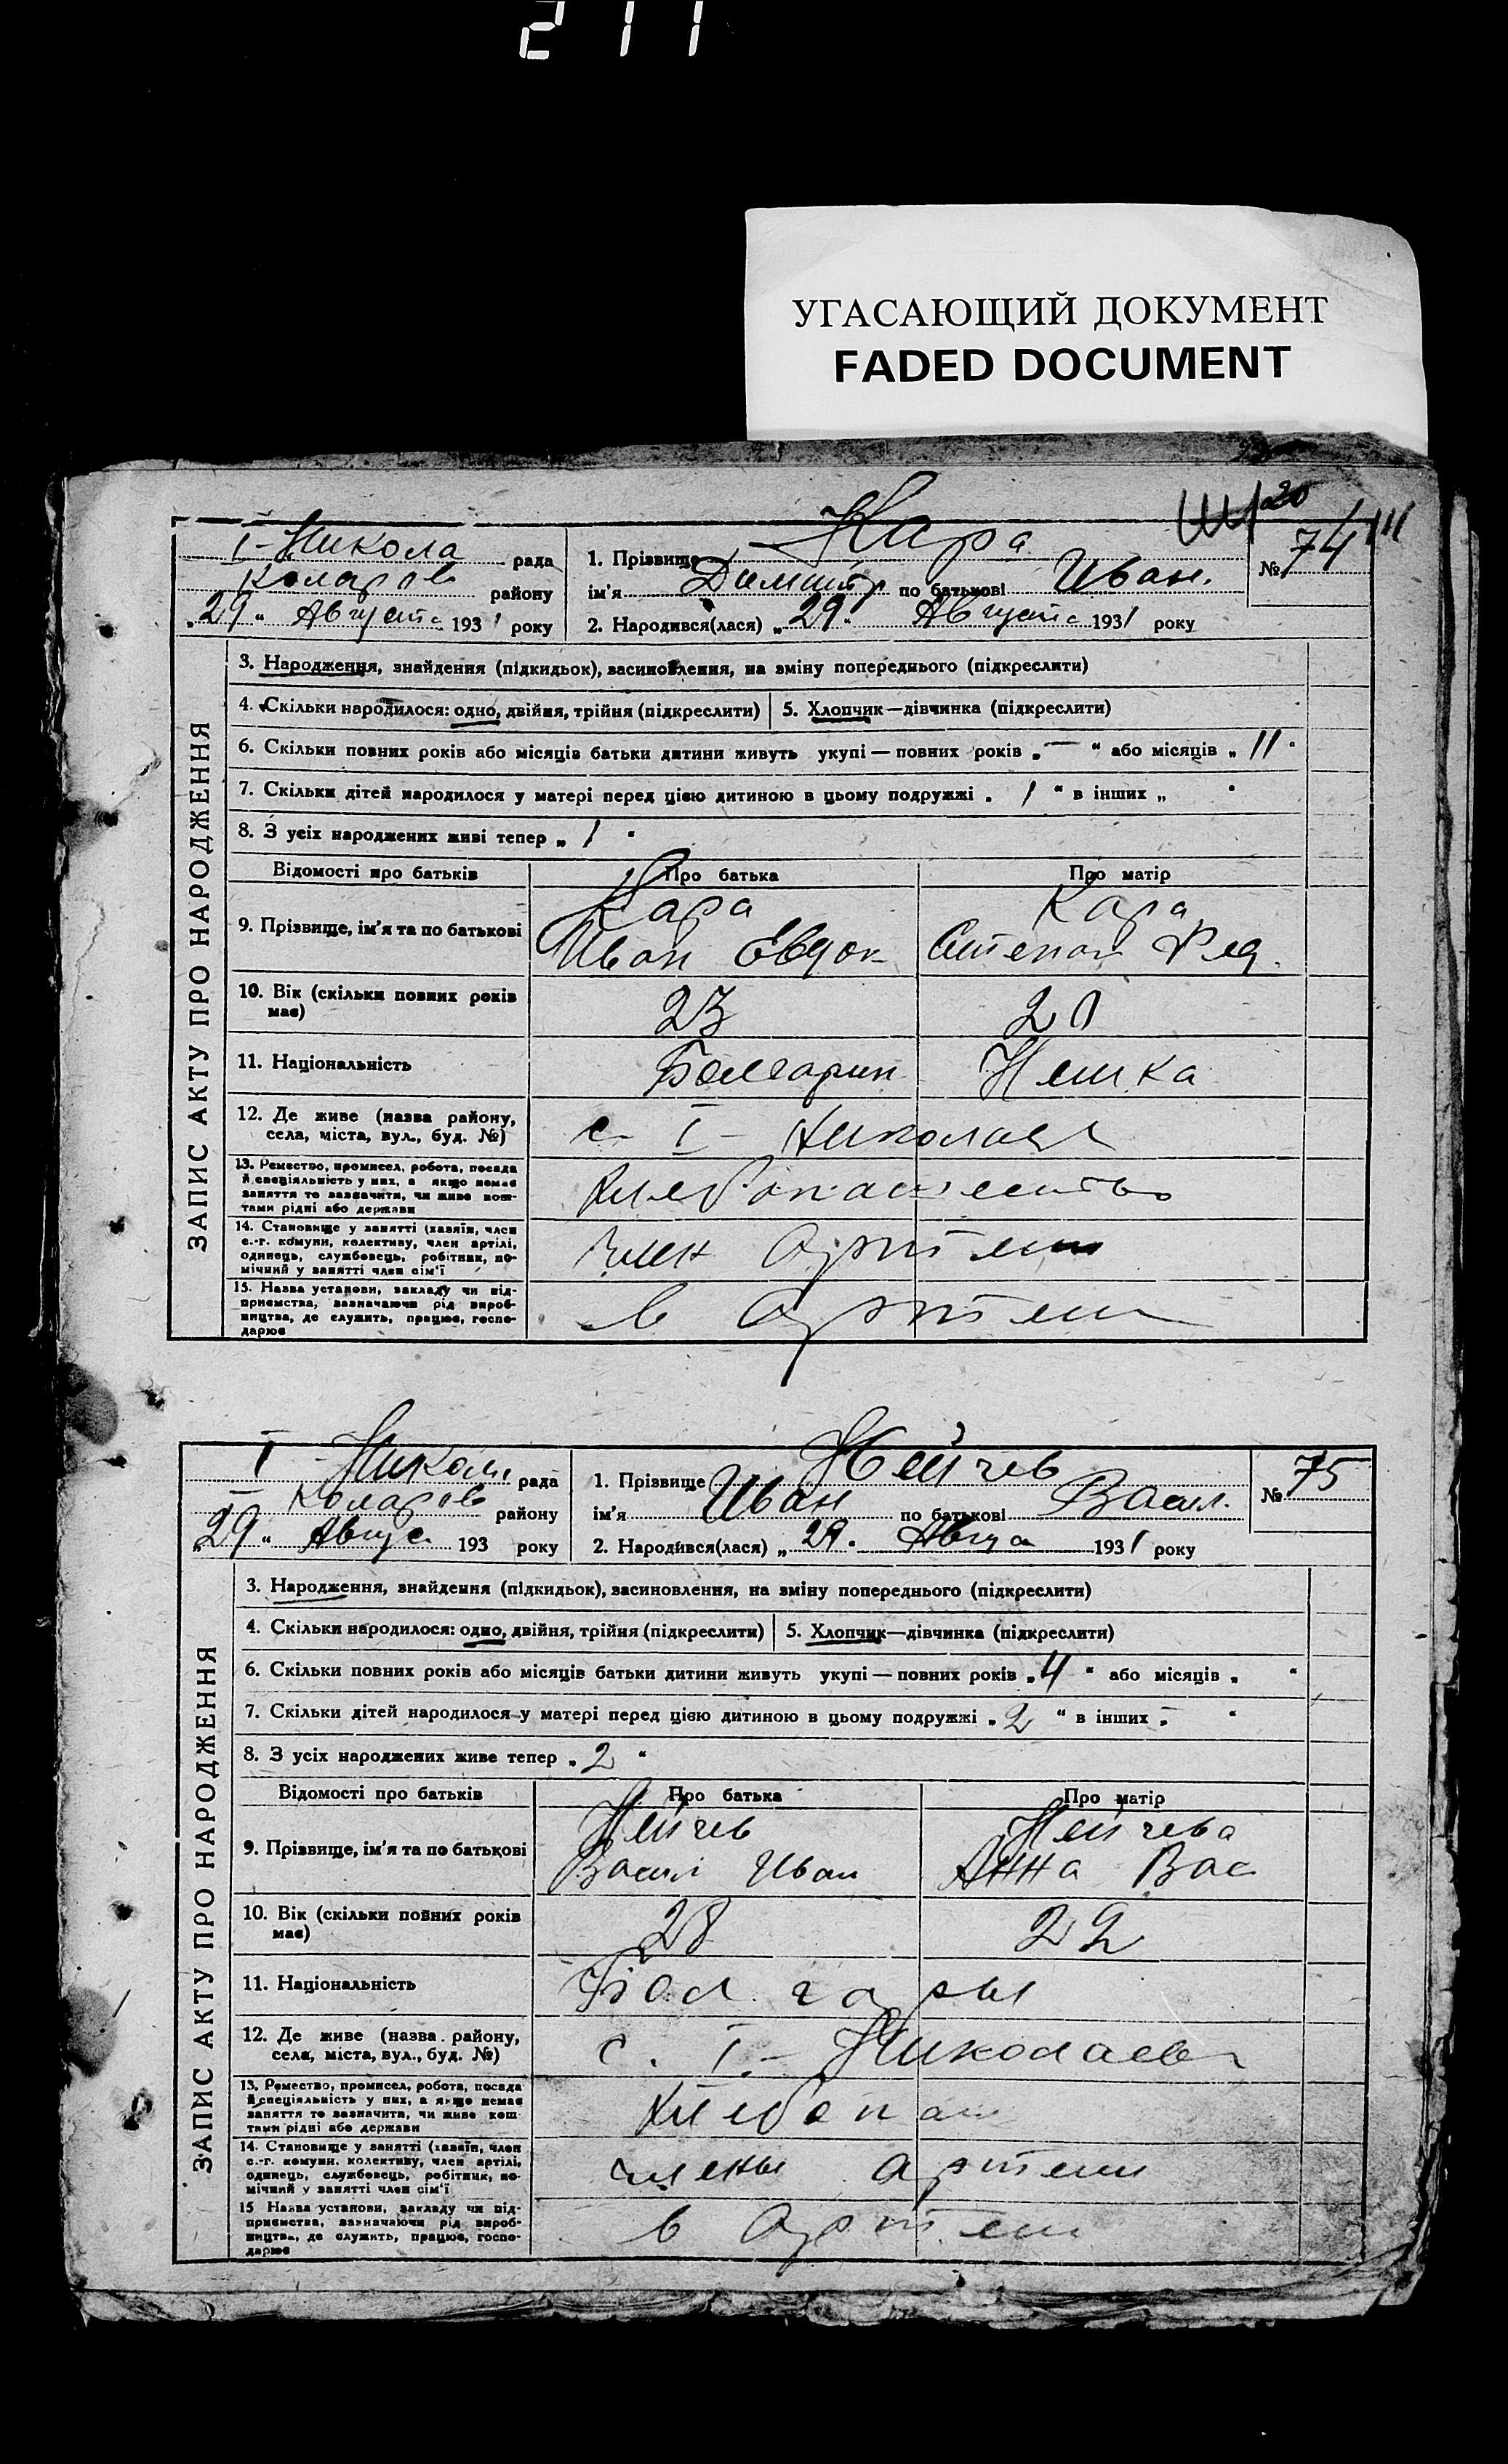 211
УГАСАЮЩИЙ ДОКУМЕНТ
FADED DOCUMENT
20
ЗАПИС АКТУ ПРО НАРОДЖЕННЯ
I-Никола рада
Коларов району
„29“ Августа 1931 року
1. Прізвище Кара
№ 74
ім'я Димитр по батькові Иван.
2. Народився(лася) „29“ Августа 1931 року
3. Народження, знайдення (підкидьок), засиновлення, на зміну попереднього (підкреслити)
4. Скільки народилося: одно, двійня, трійня (підкреслити) 5. Хлопчик—дівчинка (підкреслити)
6. Скільки повних років або місяців батьки дитини живуть укупі — повних років „—“ або місяців „11“
7. Скільки дітей народилося у матері перед цією дитиною в цьому подружжі „1“ в інших „ “
8. З усіх народжених живі тепер „1“
Відомості про батьків Про батька Про матір
9. Прізвище, ім'я та по батькові Кара Кара
Иван Евдок Степан Фед.
10. Вік (скільки повних років має) 23 20
11. Національність Болгарин Немка
12. Де живе (назва району, села, міста, вул., буд. №) с. I- Николаев
13. Ремество, промисел, робота, посада
й спеціяльність у них, а якщо немає
заняття то зазначити, чи живе кош-
тами рідні або держави
Хлебопашество
14. Становище у занятті (хазяїн, член
с.-г. комуни, колективу, член артілі,
одинець, службовець, робітник, по-
мічний у занятті член сім'ї
член Артели
15. Назва установи, закладу чи під-
приємства, зазначаючи рід вироб-
ництва, де служить, працює, госпо-
дарює
в Артели
ЗАПИС АКТУ ПРО НАРОДЖЕННЯ
I - Никол. рада
Коларов району
„29“ Авгус 193 року
1. Прізвище Нейчев
№ 75
ім'я Иван по батькові Васил.
2. Народився(лася) „29“ Авгус 1931 року
3. Народження, знайдення (підкидьок), засиновлення, на зміну попереднього (підкреслити)
4. Скільки народилося: одно, двійня, трійня (підкреслити) 5. Хлопчик—дівчинка (підкреслити)
6. Скільки повних років або місяців батьки дитини живуть укупі — повних років „4“ або місяців „ “
7. Скільки дітей народилося у матері перед цією дитиною в цьому подружжі „2“ в інших „ “
8. З усіх народжених живе тепер „2“
Відомості про батьків Про батька Про матір
9. Прізвище, ім'я та по батькові Нейчев Нейчева
Васил Иван Анна Вас
10. Вік (скільки повних років має) 28 22
11. Національність Болгары
12. Де живе (назва району, села, міста, вул., буд. №) с. I.- Николаев
13. Ремество, промисел, робота, посада
й спеціяльність у них, а якщо немає
заняття то зазначити, чи живе кош-
тами рідні або держави
Хлебопаш
14. Становище у занятті (хазяїн, член
с.-г. комуни, колективу, член артілі,
одинець, службовець, робітник, по-
мічний у занятті член сім'ї
члены артели
15 Назва установи, закладу чи під-
приємства, зазначаючи рід вироб-
ництва, де служить, працює, госпо-
дарює
в Артели